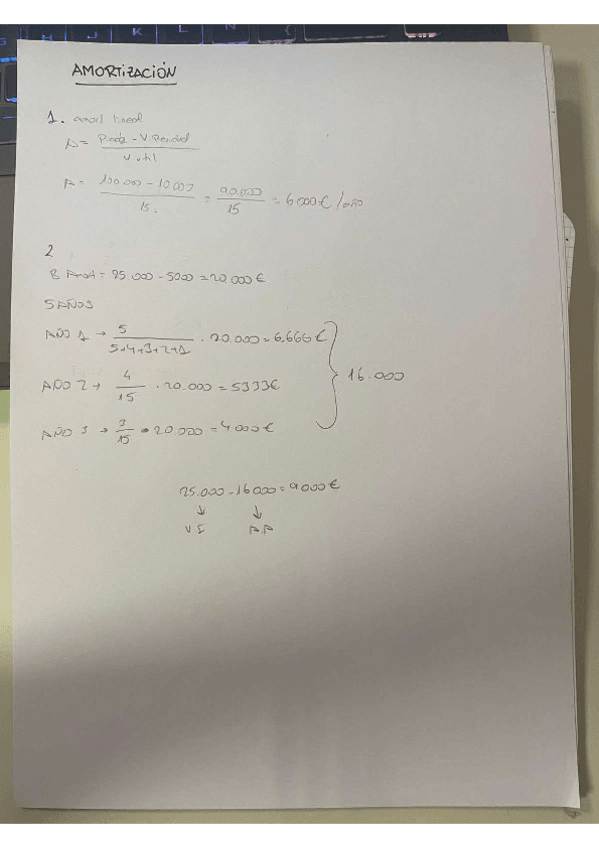 AMORTIZACIÓN
1. amort lineal
A = P.adq - V. Residual / V. útil
A = 100.000 - 10.000 / 15. = 90.000 / 15 = 6000€/año
2
B Amort = 25.000 - 5000 = 20.000 €
5 AÑOS
AÑO 1 → 5 / 5+4+3+2+1 · 20.000 = 6.666 €
AÑO 2 → 4 / 15 · 20.000 = 5333€
16.000
AÑO 3 → 3 / 15 · 20.000 = 4000€
25.000 - 16000 = 9000€
↓ ↓
V.I A.A